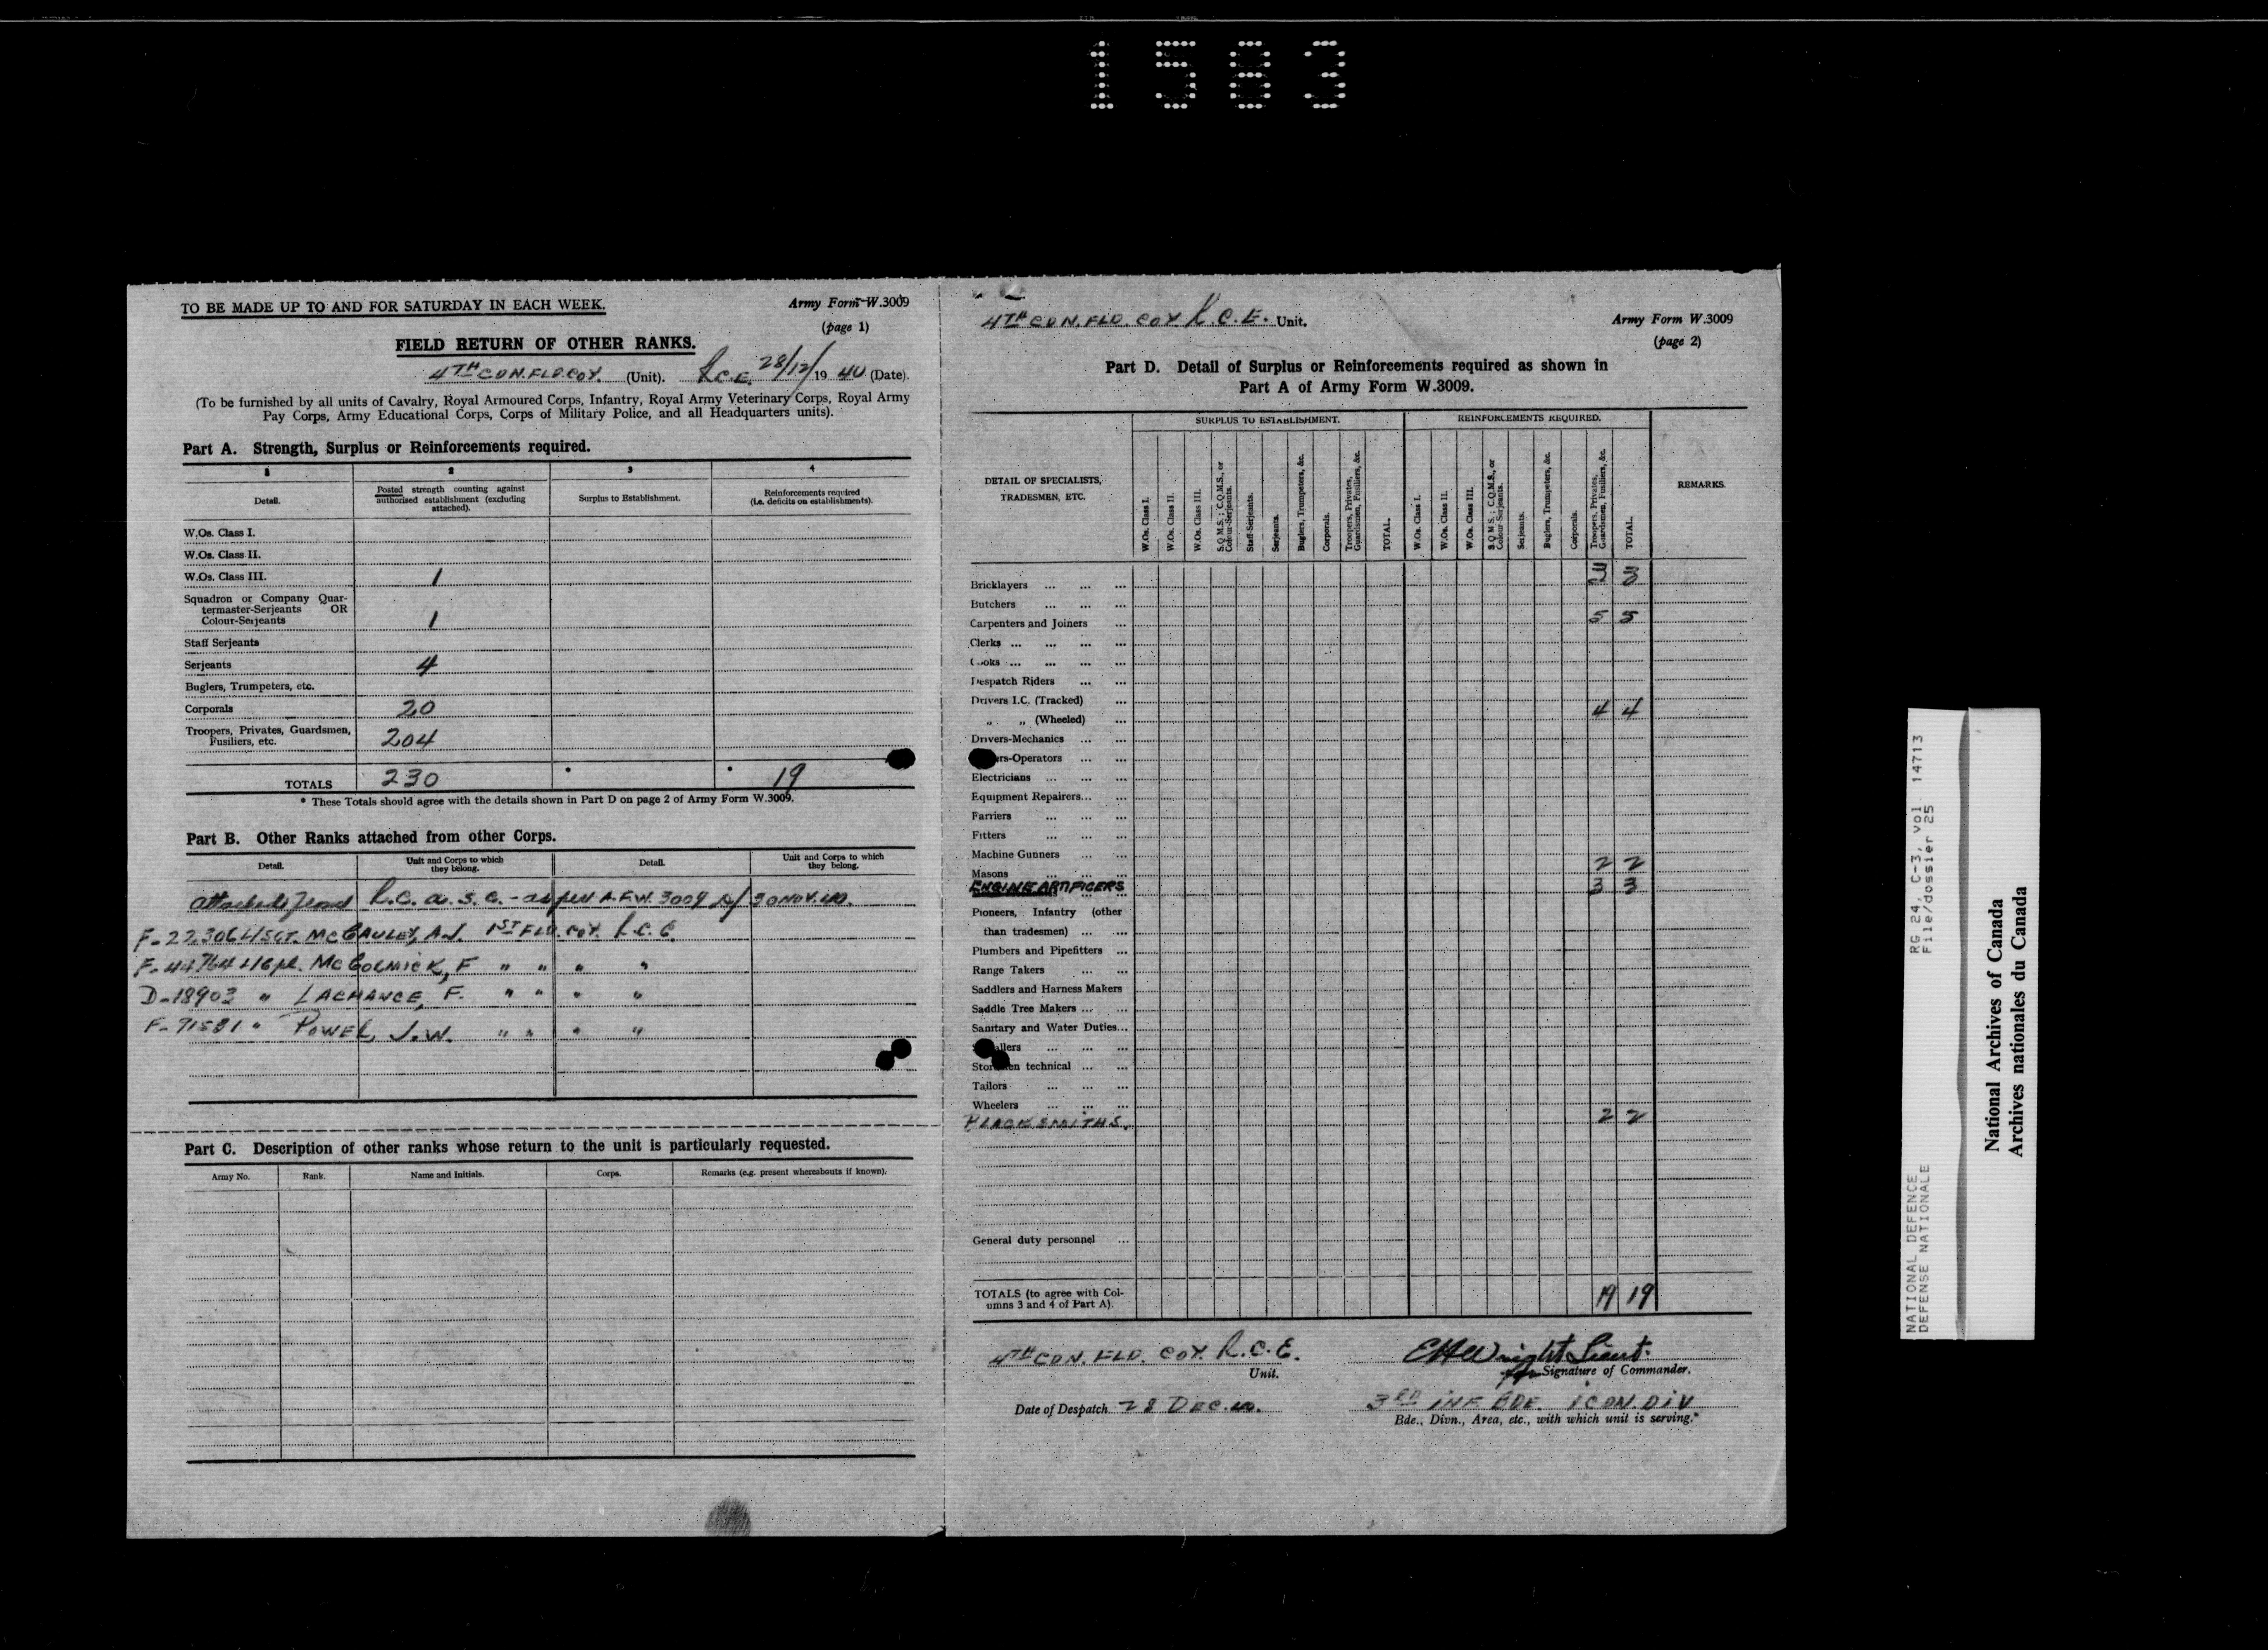 1583
TO BE MADE UP TO AND FOR SATURDAY IN EACH WEEK.
Army Form W.3009
(page 1)
FIELD RETURN OF OTHER RANKS.
4TH CDN. FLD. COY. (Unit). R.C.E. 28/12/1940 (Date).
(To be furnished by all units of Cavalry, Royal Armoured Corps, Infantry, Royal Army Veterinary Corps, Royal Army
Pay Corps, Army Educational Corps, Corps of Military Police, and all Headquarters units).
Part A. Strength, Surplus or Reinforcements required.
1 2 3 4
Detail. Posted strength counting against authorised establishment (excluding attached). Surplus to Establishment. Reinforcements required (i.e. deficits on establishments).
W.Os. Class I.
W.Os. Class II.
W.Os. Class III. 1
Squadron or Company Quar-
termaster-Serjeants OR
Colour-Serjeants 1
Staff Serjeants
Serjeants 4
Buglers, Trumpeters, etc.
Corporals 20
Troopers, Privates, Guardsmen,
Fusiliers, etc. 204
TOTALS 230 * * 19
* These Totals should agree with the details shown in Part D on page 2 of Army Form W.3009.
Part B. Other Ranks attached from other Corps.
Detail. Unit and Corps to which they belong. Detail. Unit and Corps to which they belong.
R.C.A.S.C. - as per A.F.W. 3009 D/ 30 NOV. 40.
F-22306 L/SGT. McCAULEY, A.J. 1ST FLD. COY. R.C.E.
F-44764 L/Cpl. McCORMICK, F " " " "
D-18903 " LACHANCE, F. " " " "
F-71581 " POWER, J.W. " " " "
Part C. Description of other ranks whose return to the unit is particularly requested.
Army No. Rank. Name and Initials. Corps. Remarks (e.g. present whereabouts if known).
4TH CDN. FLD. COY R.C.E. Unit.
Army Form W.3009
(page 2)
Part D. Detail of Surplus or Reinforcements required as shown in
Part A of Army Form W.3009.
DETAIL OF SPECIALISTS,
TRADESMEN, ETC.
SURPLUS TO ESTABLISHMENT. REINFORCEMENTS REQUIRED. REMARKS.
W.Os. Class I. W.Os. Class II. W.Os. Class III. S.Q.M.S.; C.Q.M.S., or Colour-Serjeants. Staff-Serjeants. Serjeants. Buglers, Trumpeters, &c. Corporals. Troopers, Privates, Guardsmen, Fusiliers, &c. TOTAL.
W.Os. Class I. W.Os. Class II. W.Os. Class III. S.Q.M.S.; C.Q.M.S., or Colour-Serjeants. Serjeants. Buglers, Trumpeters, &c. Corporals. Troopers, Privates, Guardsmen, Fusiliers, &c. TOTAL.
Bricklayers ... ... ... 3 3
Butchers ... ... ...
Carpenters and Joiners ... 5 5
Clerks ... ... ... ...
Cooks ... ... ... ...
Despatch Riders ... ...
Drivers I.C. (Tracked) ...
" " (Wheeled) ... 4 4
Drivers-Mechanics ... ...
rs-Operators ... ...
Electricians ... ... ...
Equipment Repairers... ...
Farriers ... ... ...
Fitters ... ... ...
Machine Gunners ... ...
Masons ... ... ... 2 2
ENGINE ARTIFICERS 3 3
Pioneers, Infantry (other
than tradesmen) ... ...
Plumbers and Pipefitters ...
Range Takers ... ...
Saddlers and Harness Makers
Saddle Tree Makers ... ...
Sanitary and Water Duties...
allers ... ... ...
Storemen technical ... ...
Tailors ... ... ...
Wheelers ... ... ...
BLACKSMITHS. 2 2
General duty personnel ...
TOTALS (to agree with Col-
umns 3 and 4 of Part A). 19 19
4TH CDN. FLD. COY. R.C.E.
Unit.
EHWright Lieut.
for Signature of Commander.
Date of Despatch 28 DEC. 40.
3RD INF BDE. 1 CDN. DIV
Bde., Divn., Area, etc., with which unit is serving.*
NATIONAL DEFENCE RG 24, C-3, vol. 14713
DEFENSE NATIONALE File/dossier 25
National Archives of Canada
Archives nationales du Canada